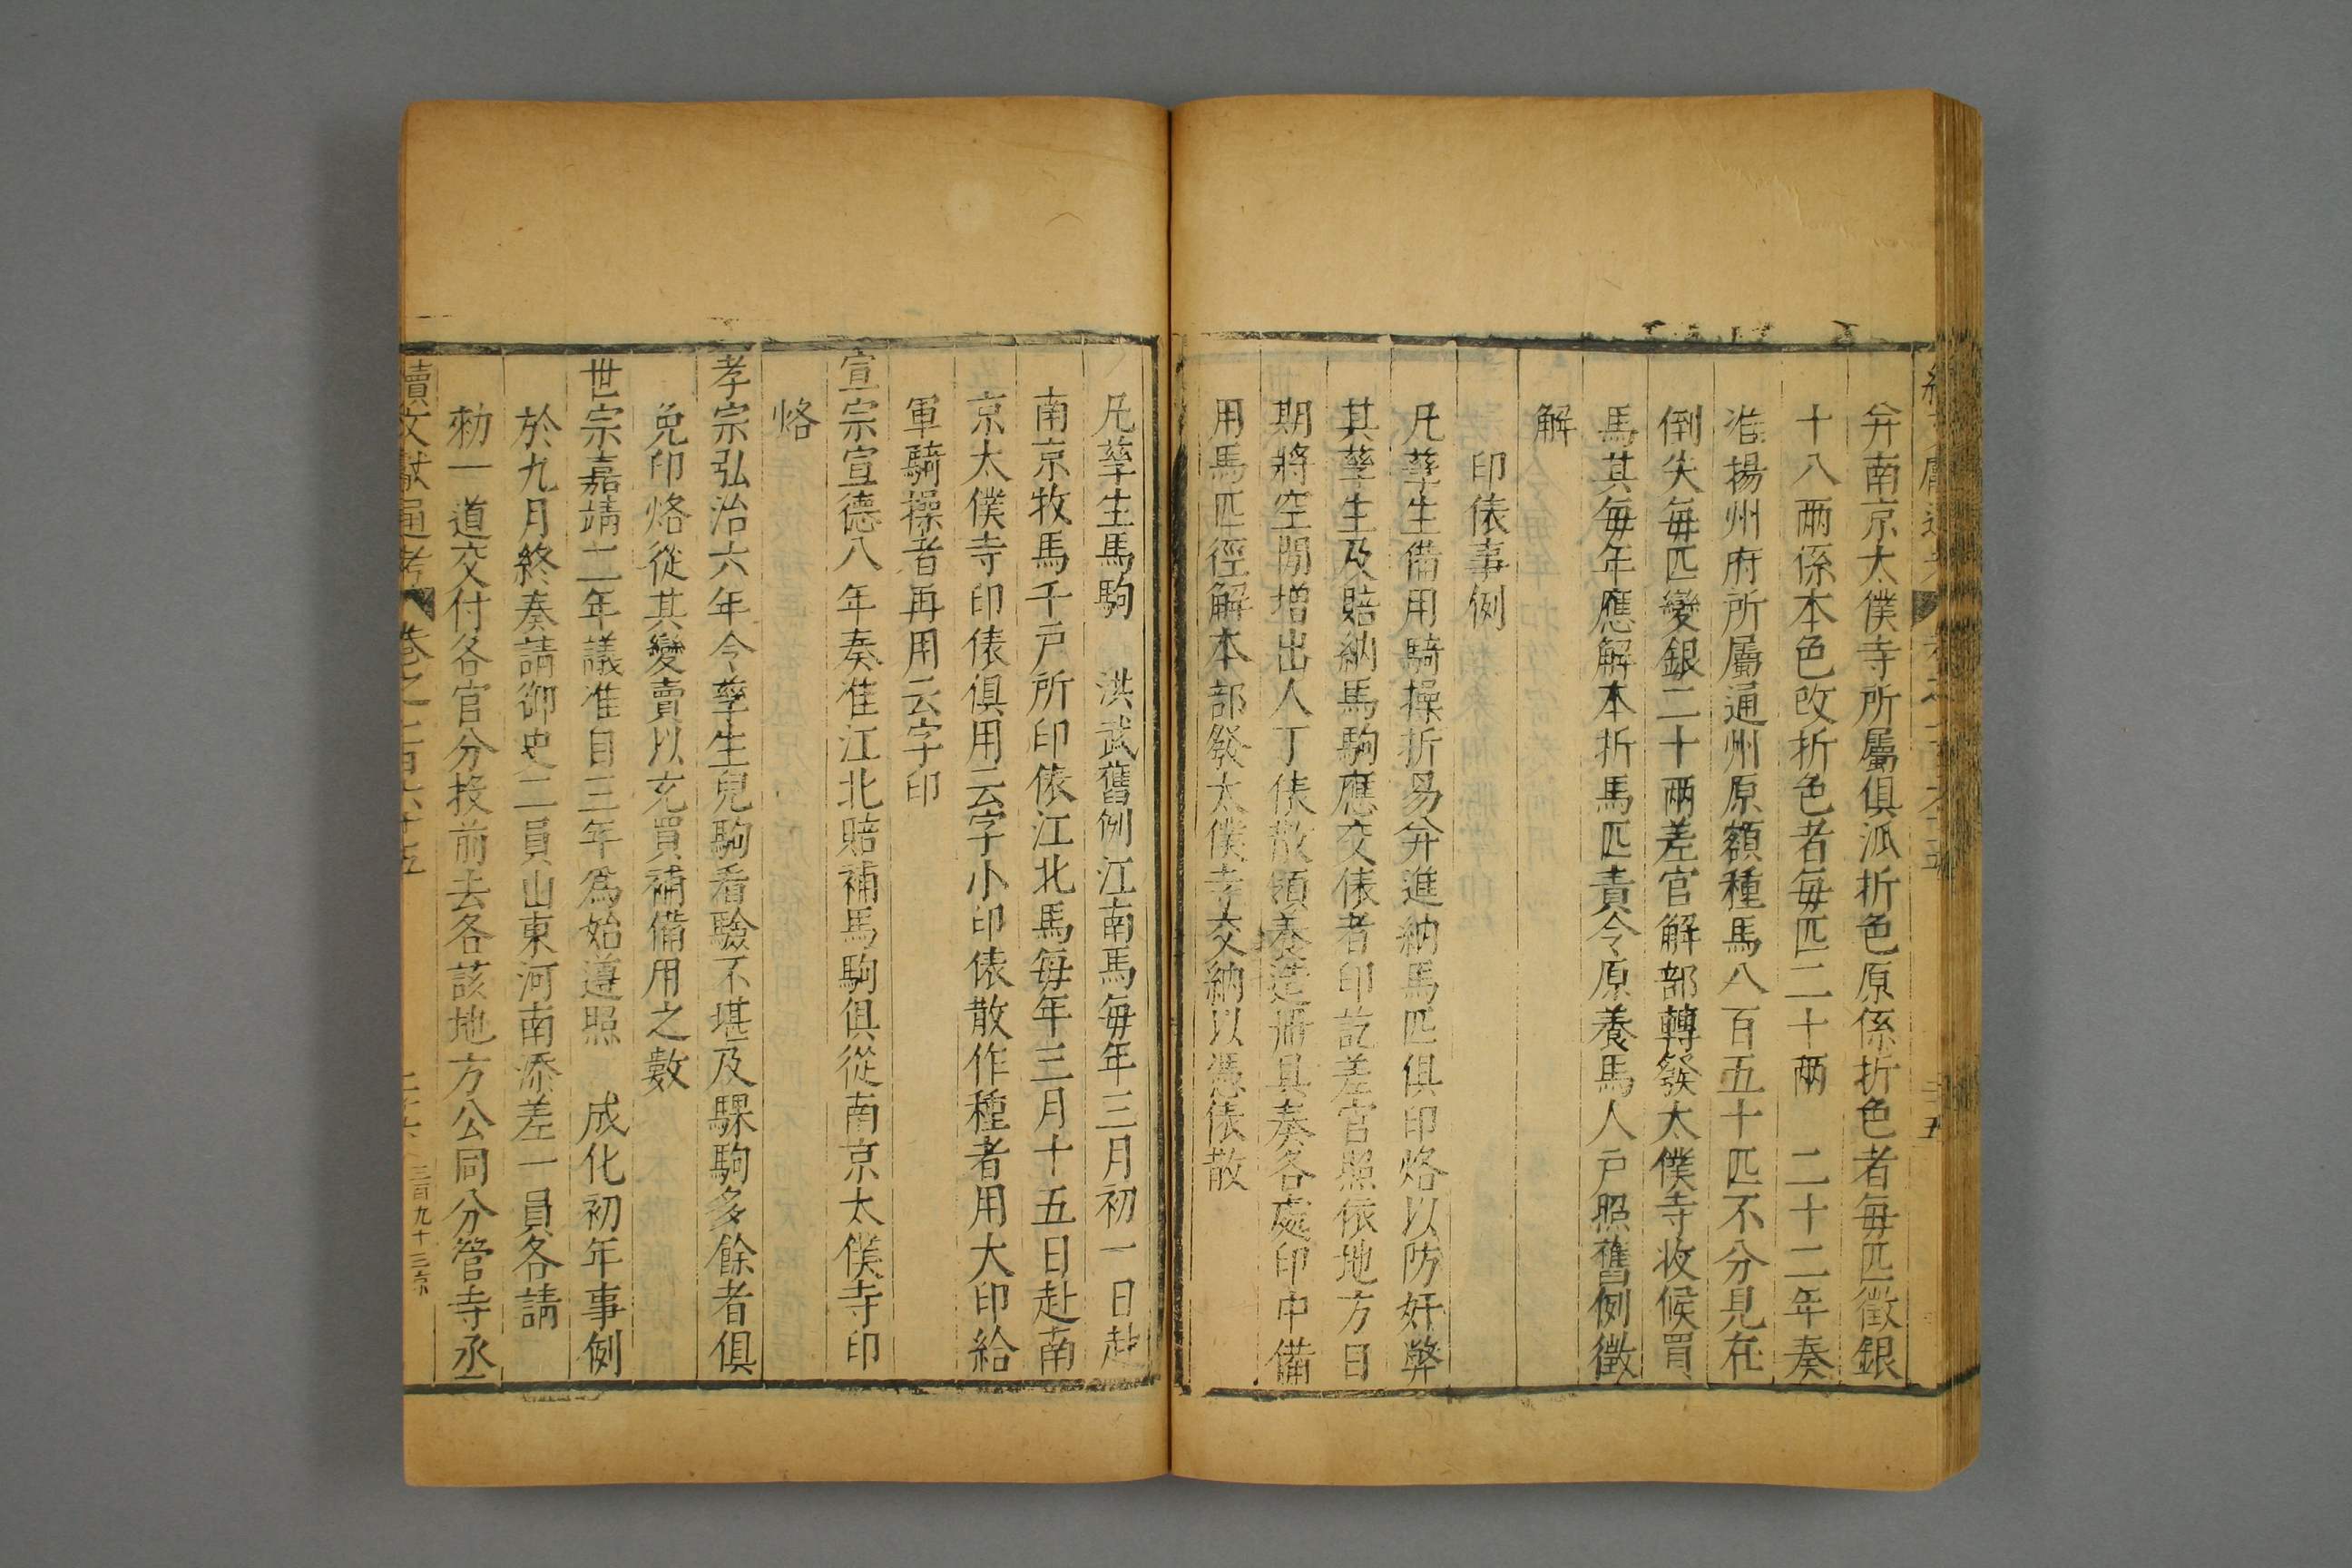 弁南京太僕寺所屬俱派折色原係折色者每匹徵銀
十八兩係本色改折色者每匹二十兩 二十二年奏
准揚州府所屬通州原額種馬八百五十匹不分見在
倒失每匹變銀二十兩差官解部轉發太僕寺收候買
馬其每年應解本折馬匹責令原養馬人戶照舊例徵
解
印俵事例
凡孳生備用騎操折易弁進納馬匹俱印烙以防奸弊
其孳生及賠納馬駒應交俵者印訖差官照依地方日
期將空閒增出人丁俵散領養造冊具奏各處印中備
用馬匹徑解本部發太僕寺交納以憑俵散
凡孳生馬駒 洪武舊例江南馬每年三月初一日赴
南京牧馬千戶所印俵江北馬每年三月十五日赴南
京太僕寺印俵俱用云字小印俵散作種者用大印給
軍騎操者再用云字印
宣宗宣德八年奏准江北賠補馬駒俱從南京太僕寺印
烙
孝宗弘治六年令孳生兒駒看驗不堪及騍駒多餘者俱
免印烙從其變賣以充買補備用之數
世宗嘉靖二年議准自三年為始遵照 成化初年事例
於九月終奏請御史二員山東河南添差一員各請
勑一道交付各官分投前去各該地方公同分管寺丞
續文獻通考 卷之二百六十五 三百九十三